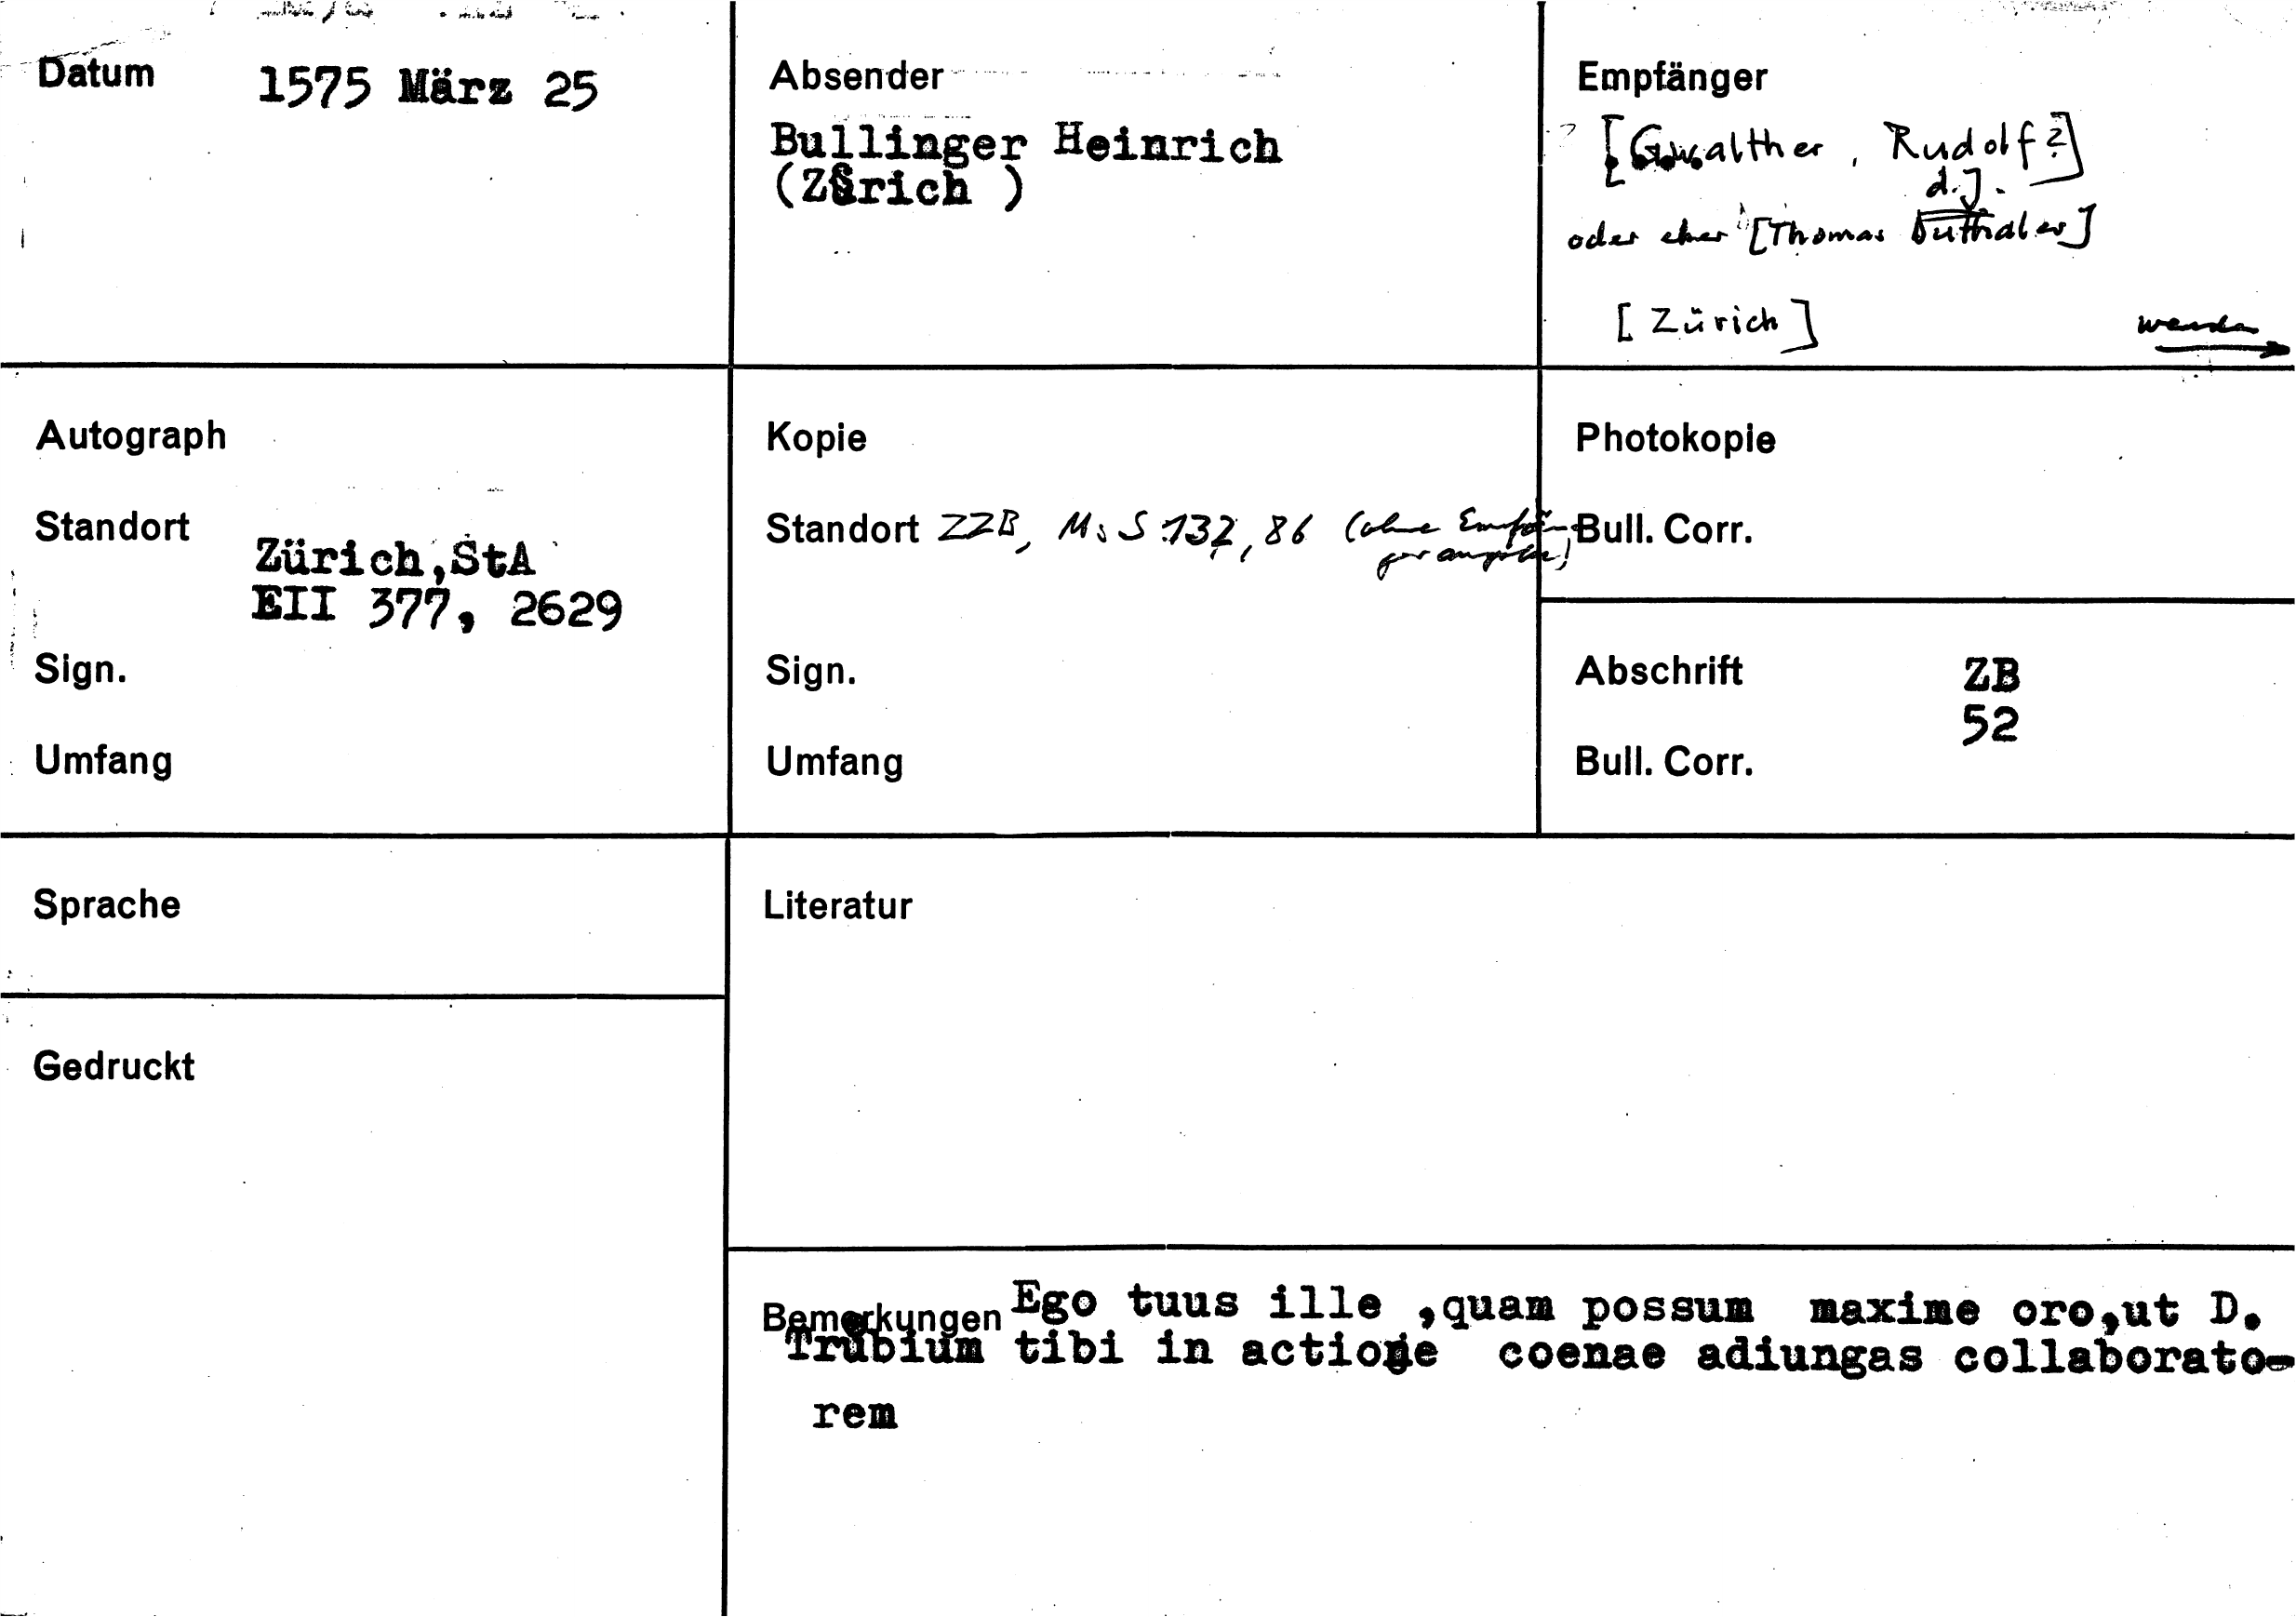 Datum 1575 März 25
Absender
Bullinger Heinrich
(Z§rich )
Empfänger
[Gwalther, Rudolf?]
d.J.
oder eher [Thomas Dutthaler]
[Zürich]
wenden
Autograph
Standort
Zürich,StA
EII 377, 2629
Sign.
Umfang
Kopie
Standort ZZB, Ms S 132, 86 (ohne Empfän-
gerangabe)
Sign.
Umfang
Photokopie
Bull. Corr.
Abschrift ZB
52
Bull. Corr.
Sprache
Gedruckt
Literatur
Bemerkungen Ego tuus ille ,quam possum maxime oro,ut D.
Trübium tibi in actione coenae adiungas collaborato-
rem